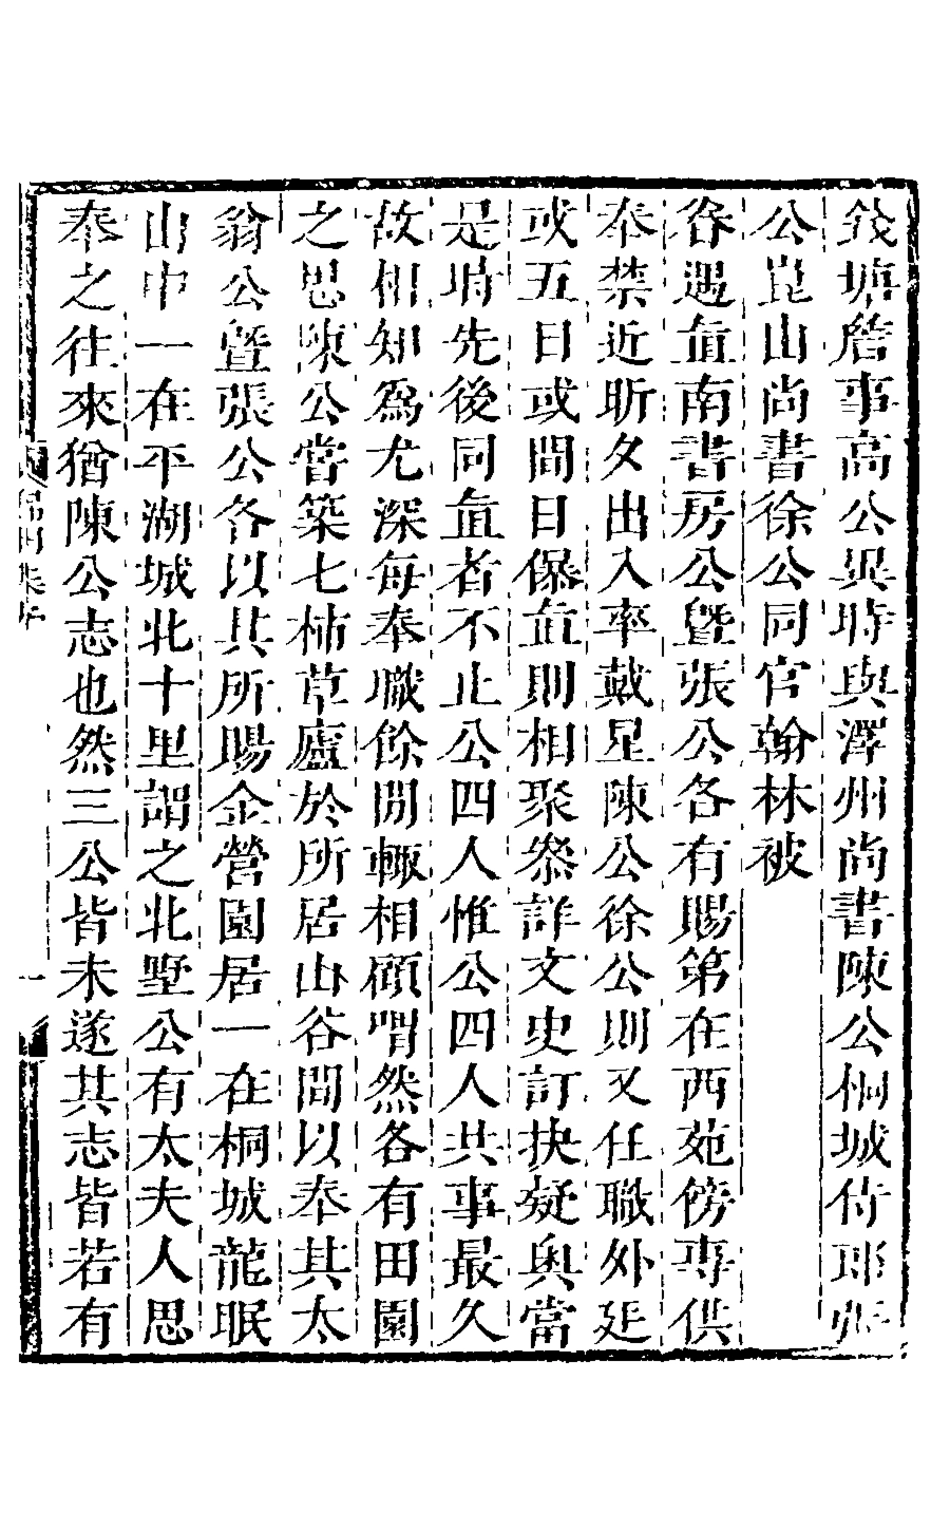 錢塘詹事高公異時與澤州尚書陳公桐城侍郎張
公崑山尚書徐公同官翰林被
眷遇直南書房公暨張公各有賜第在西苑傍專供
奉禁近昕夕出入率戴星陳公徐公則又任職外廷
或五日或間日傫直則相聚叅詳文史訂抉疑奥當
是時先後同直者不止公四人惟公四人共事最久
故相知爲尤深每奉職餘閒輒相顧喟然各有田園
之思陳公嘗築七柿草廬於所居山谷間以奉其太
翁公暨張公各以其所賜金營園居一在桐城龍眠
山中一在平湖城北十里謂之北墅公有太夫人思
奉之往來猶陳公志也然三公皆未遂其志皆若有
集序
一